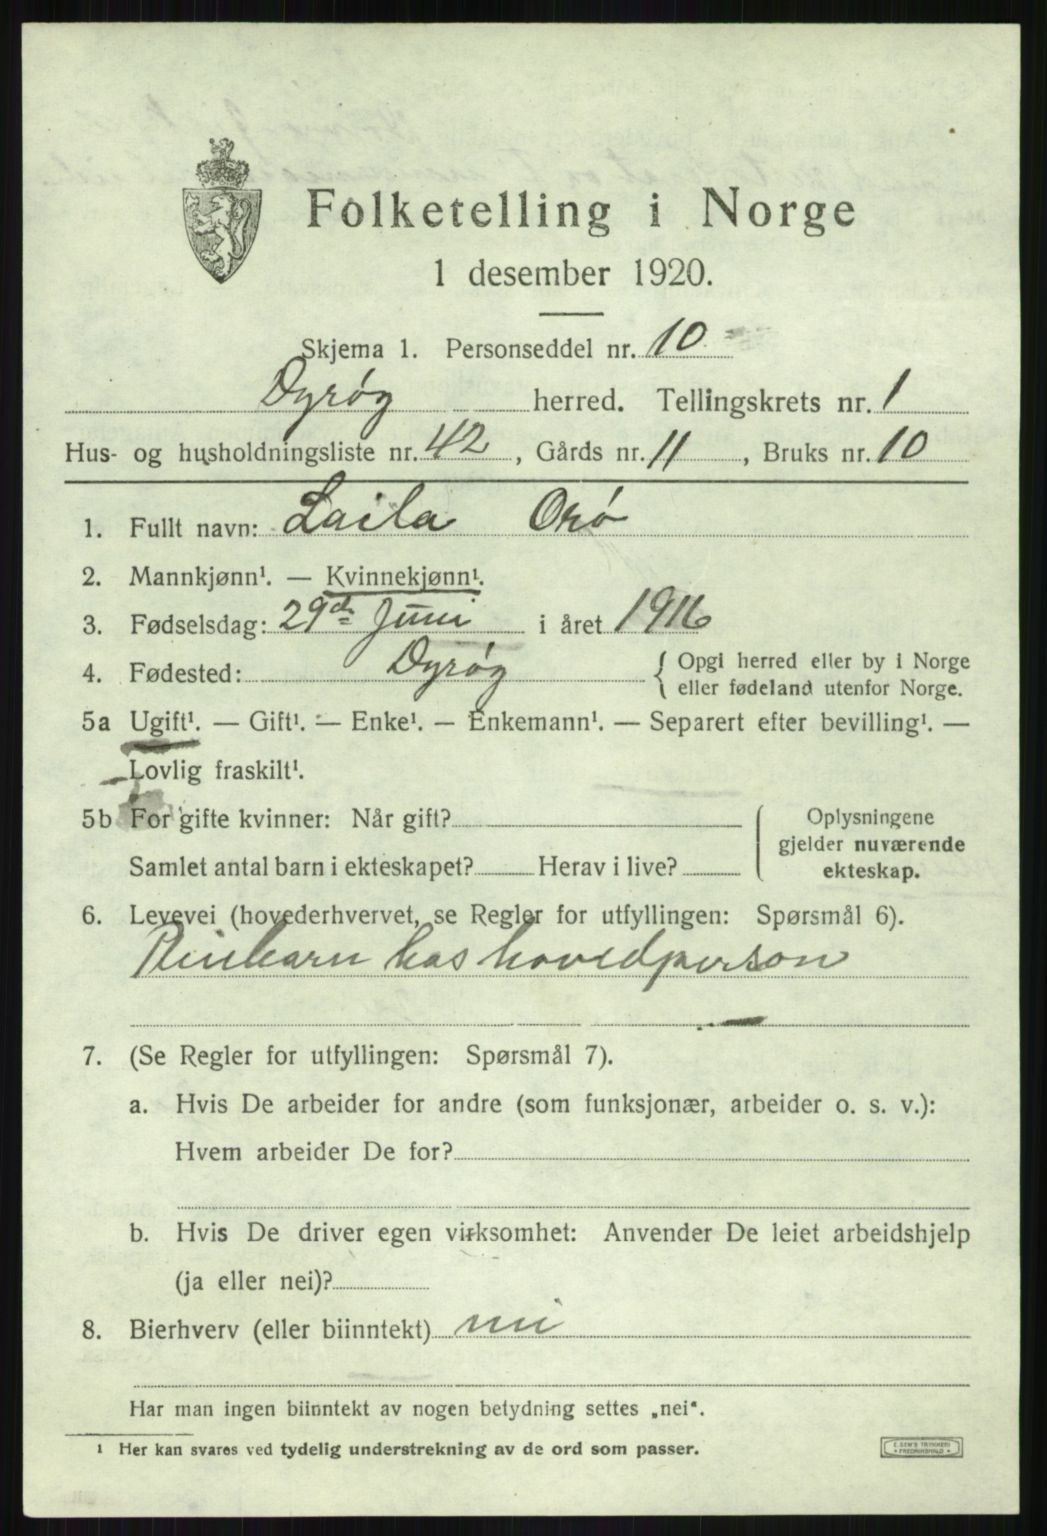 Folketelling i Norge
1 desember 1920.
Skjema 1. Personseddel nr. 10
Dyrøy herred. Tellingskrets nr. 1
Hus- og husholdningsliste nr. 42, Gårds nr. 11, Bruks nr. 10
1. Fullt navn: Laila Orø
2. Mannkjønn¹. — Kvinnekjønn¹.
3. Fødselsdag: 29de Juni i året 1916
4. Fødested: Dyrøy { Opgi herred eller by i Norge
eller fødeland utenfor Norge.
5a Ugift¹. — Gift¹. — Enke¹. — Enkemann¹. — Separert efter bevilling¹. —
Lovlig fraskilt¹.
5b For gifte kvinner: Når gift?
Samlet antal barn i ekteskapet? Herav i live?
Oplysningene
gjelder nuværende
ekteskap.
6. Levevei (hovederhvervet, se Regler for utfyllingen: Spørsmål 6).
hos hovedperson
7. (Se Regler for utfyllingen: Spørsmål 7).
a. Hvis De arbeider for andre (som funksjonær, arbeider o. s. v.):
Hvem arbeider De for?
b. Hvis De driver egen virksomhet: Anvender De leiet arbeidshjelp
(ja eller nei)?
8. Bierhverv (eller biinntekt) nei
Har man ingen biinntekt av nogen betydning settes „nei“.
¹ Her kan svares ved tydelig understrekning av de ord som passer.